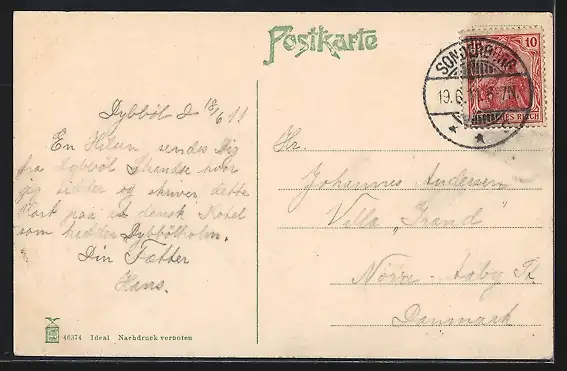 Postkarte
SONDERBURG
10
19.6.11
DEUTSCHES REICH
Dybböl d 18/6 11
En Hilsen sendes Dig
fra Dybböl Skandse hvor
jeg sidder og skriver dette
Kort paa et dansk Hotel
som hedder Dybbölholm.
Din Fætter
Hans.
Hr.
Johannes Andersen
Villa „Strand"
Nörre-Aaby St
Danmark
46374 Ideal Nachdruck verboten